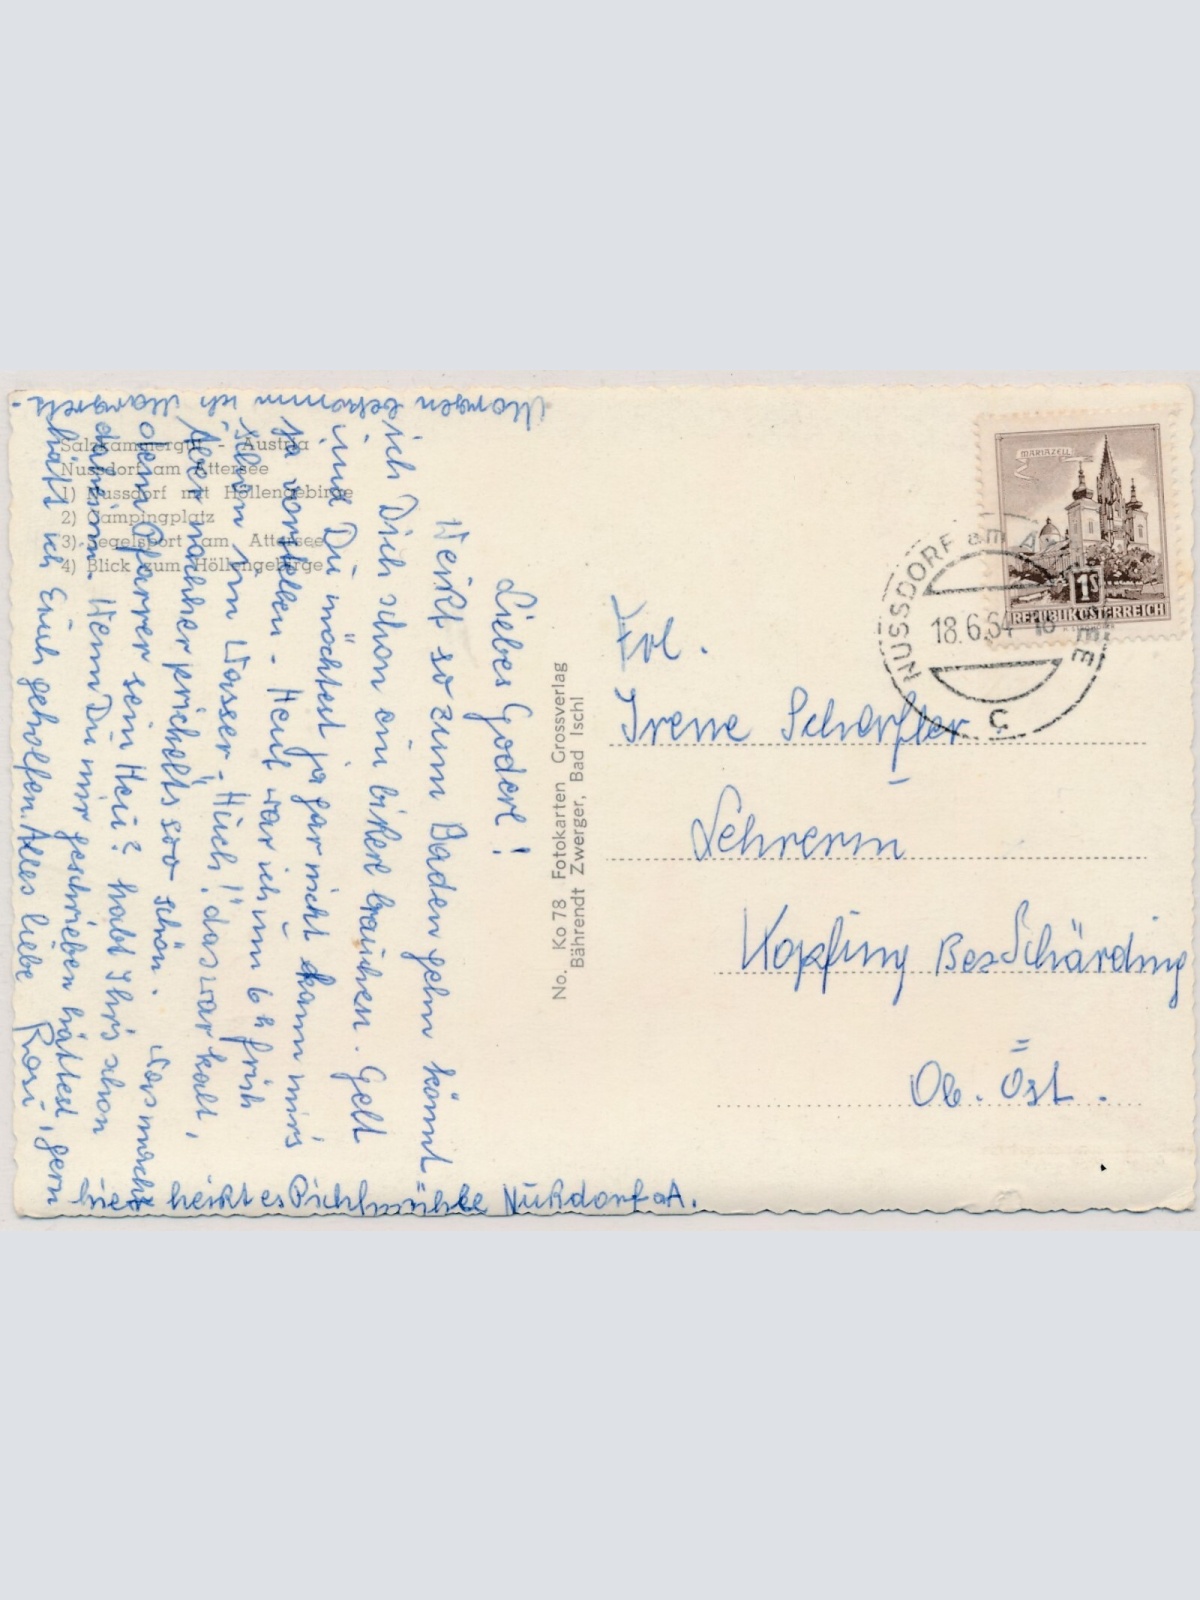 Salzkammergut - Austria
Nussdorf am Attersee
1) Nussdorf mit Höllengebirge
2) Campingplatz
3) Segelsport am Attersee
4) Blick zum Höllengebirge
Liebes Goderl!
Weißt so zum Baden gehn könnt
ich Dich schon ein bißerl brauchen. Gelt
und Du möchtest ja gar nicht kann mir's
ja vorstellen. Heut war ich um 6h früh
schon im Wasser - Huch! das war kalt,
Aber nachher prickelts soo schön. Was macht
denn Pfarrer sein Heu? habt Ihr's schon
daheim. Wenn Du mir geschrieben hättest, gern
hätt ich Euch geholfen. Alles liebe Rosi
Morgen bekomm ich
hier heißt es Pichlmühle Nußdorf a A.
No. Ko 78 Fotokarten Grossverlag
Bährendt Zwerger, Bad Ischl
MARIAZELL
1S
REPUBLIK ÖSTERREICH
NUSSDORF am ATTERSEE
18.6.64
c
Frl.
Irene Scharfler
Lehrerin
Kopfing Bez Schärding
Ob. Öst.